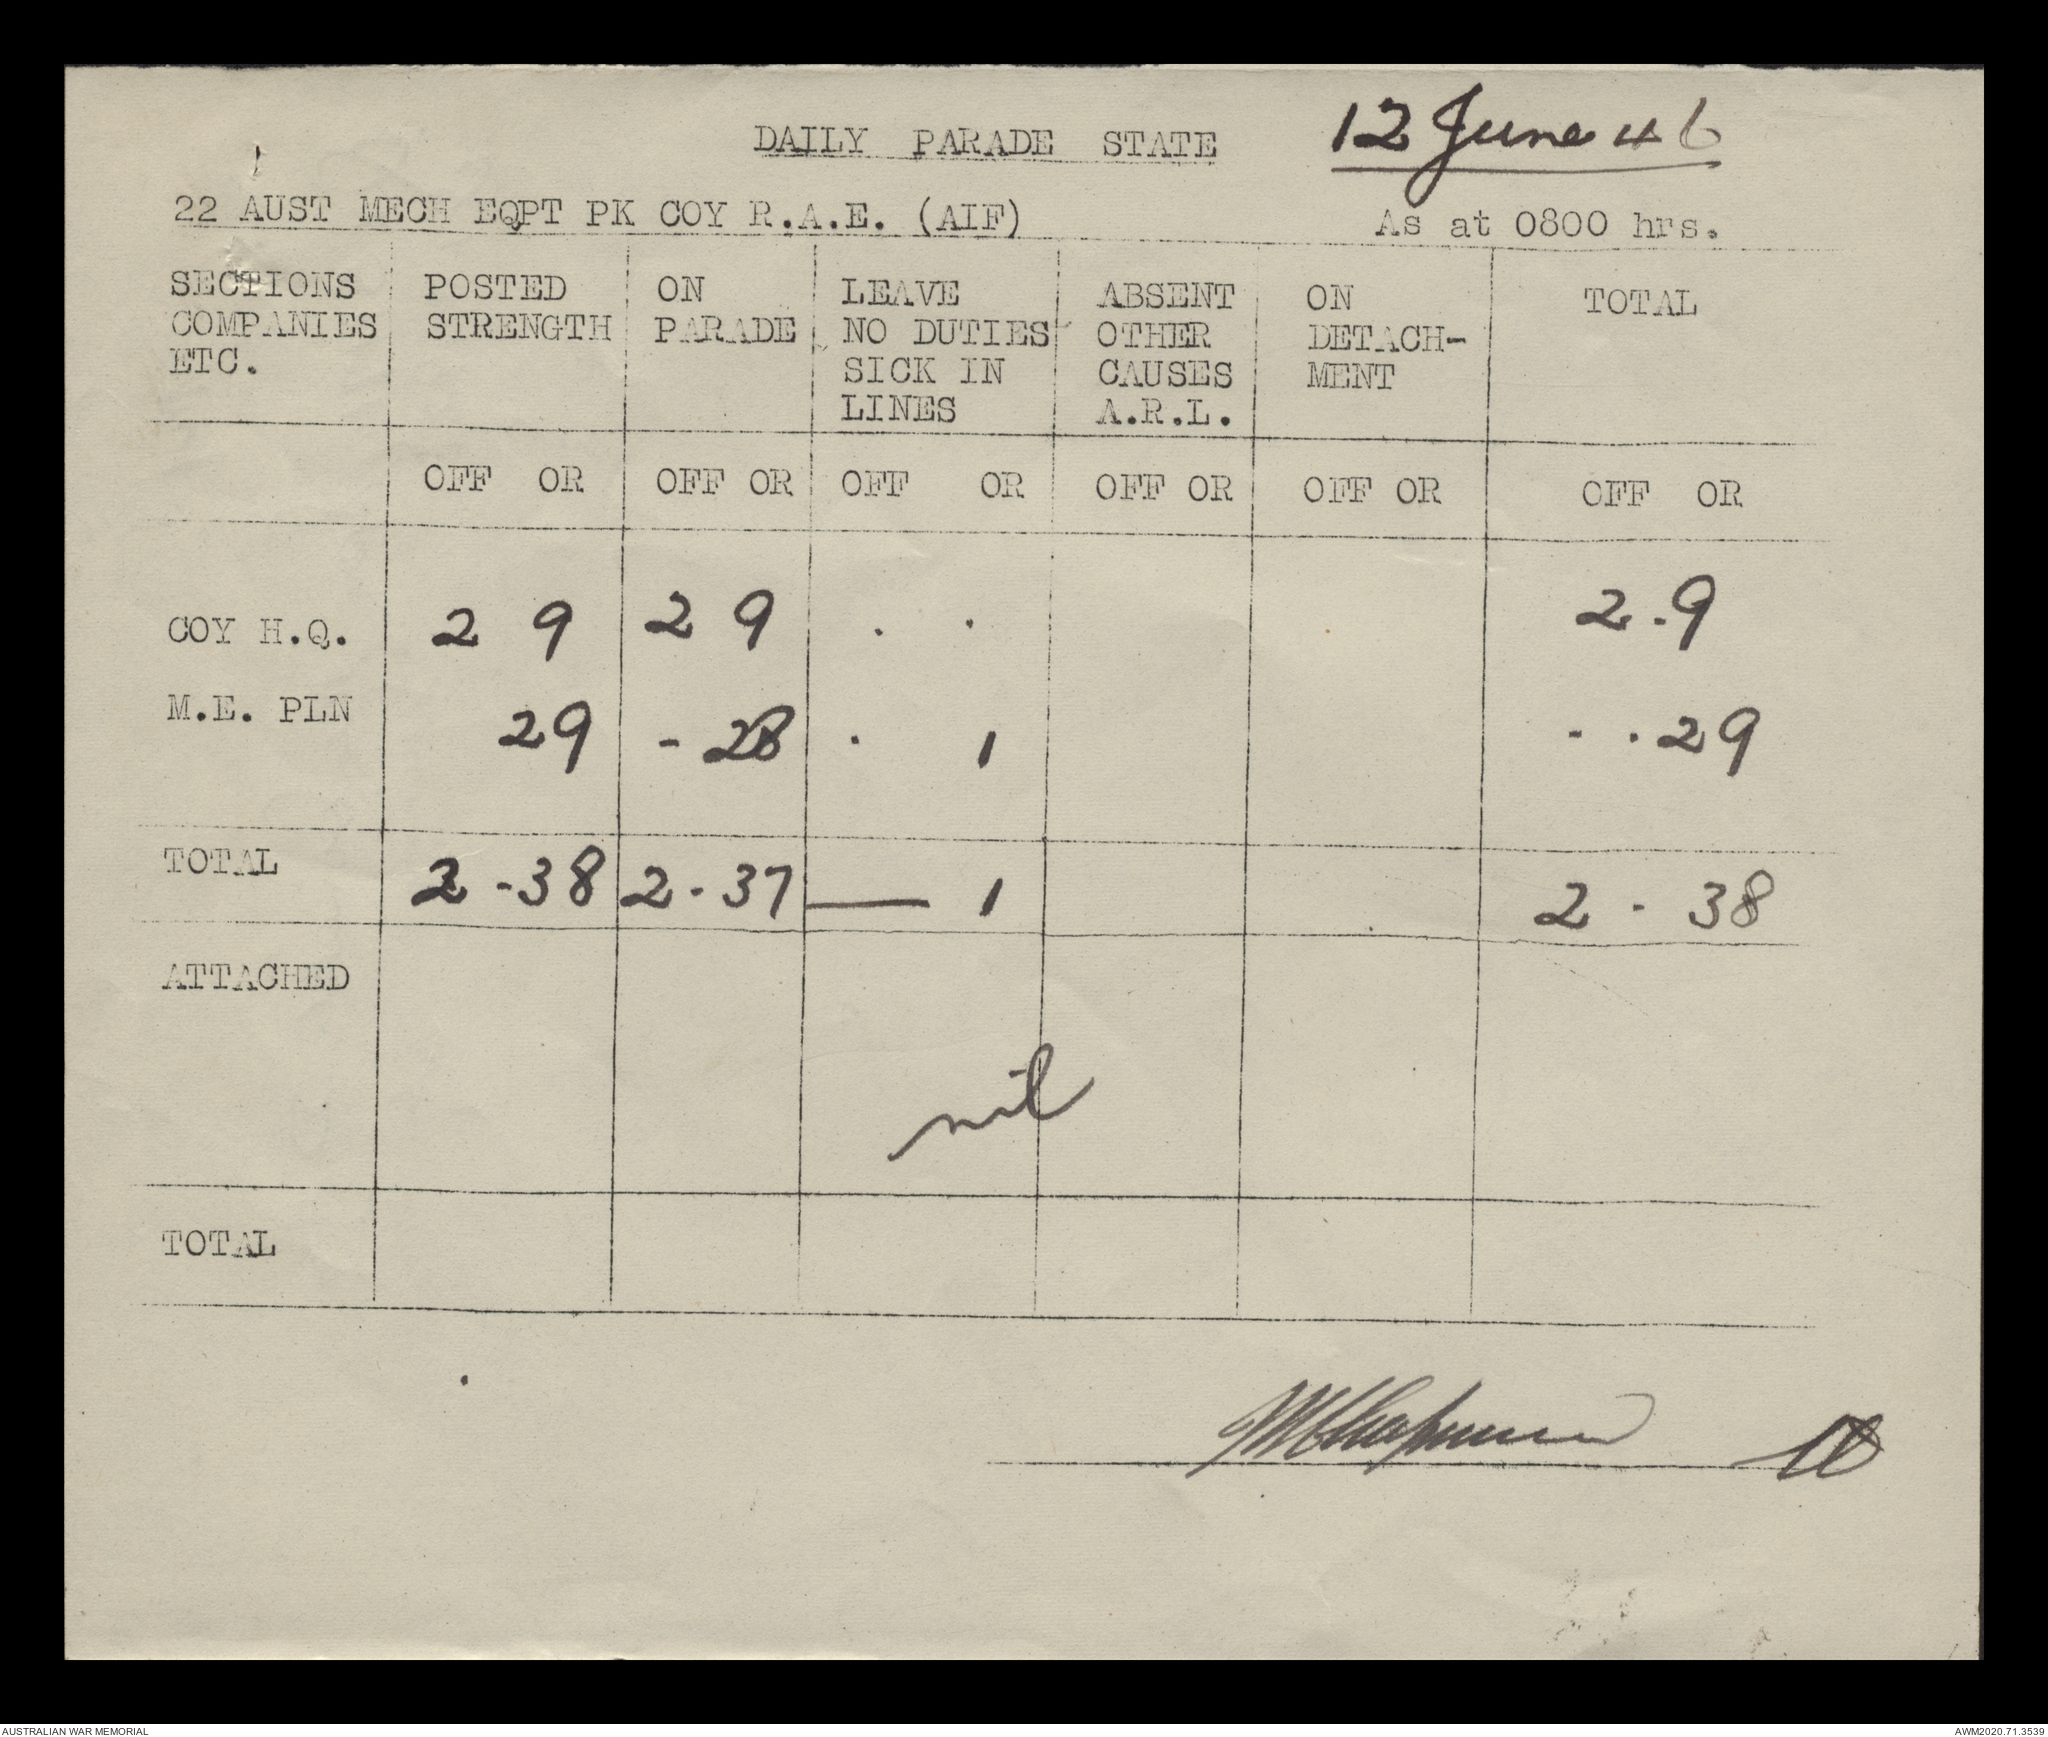 DAILY PARADE STATE 12 June 46
22 AUST MECH EQPT PK COY R.A.E. (AIF) As at 0800 hrs.
SECTIONS POSTED ON LEAVE ABSENT ON TOTAL
COMPANIES STRENGTH PARADE NO DUTIES OTHER DETACH-
ETC. SICK IN CAUSES MENT
LINES A.R.L.
OFF OR OFF OR OFF OR OFF OR OFF OR OFF OR
COY H.Q. 2 9 2 9 . . 2 . 9
M.E. PLN 29 - 28 . 1 - . 29
TOTAL 2 - 38 2 - 37 — 1 2 - 38
ATTACHED
nil
TOTAL
Lt
AUSTRALIAN WAR MEMORIAL AWM2020.71.3539